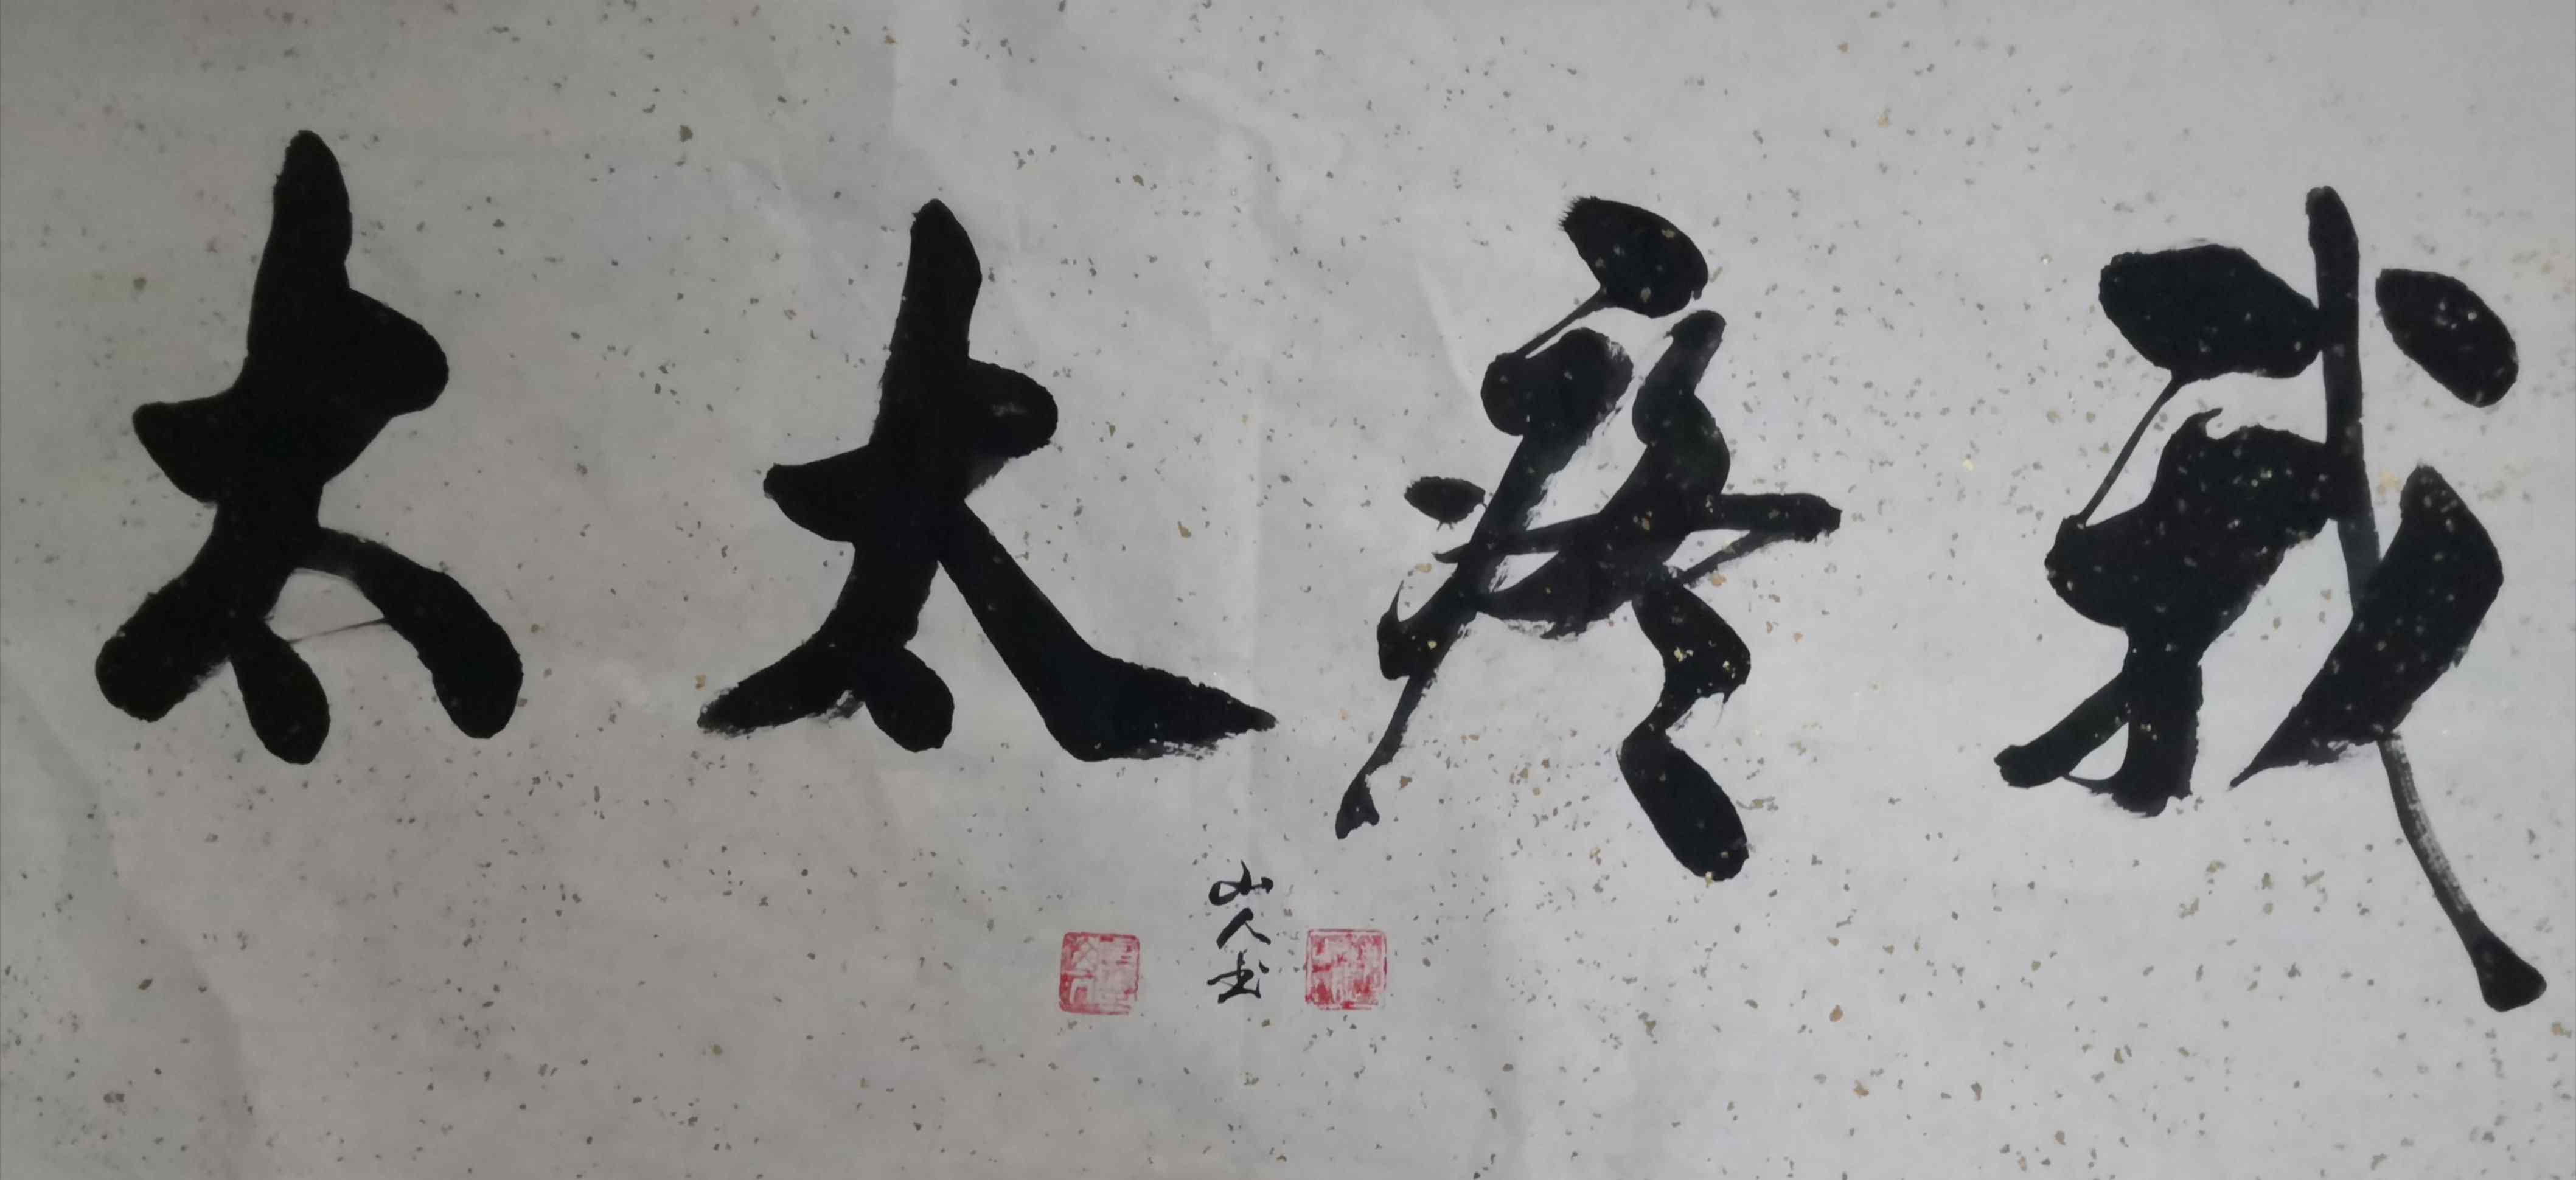 我疼太太
山人书